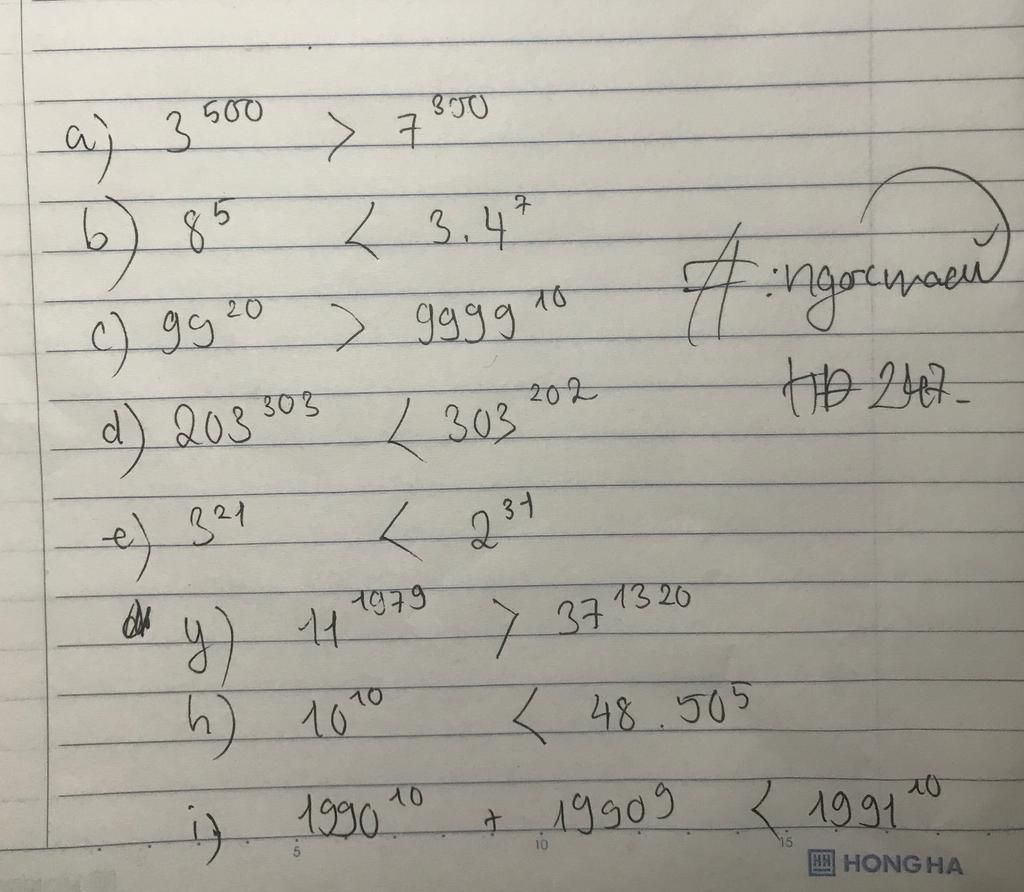 a) 3^500 > 7^300
b) 8^5 < 3.4^7
c) 99^20 > 9999^10
d) 203^303 < 303^202
e) 3^21 < 2^31
y) 11^1979 > 37^1320
h) 10^10 < 48.50^5
i) 1990^10 + 1990^9 < 1991^10
5 10 15
HONG HA